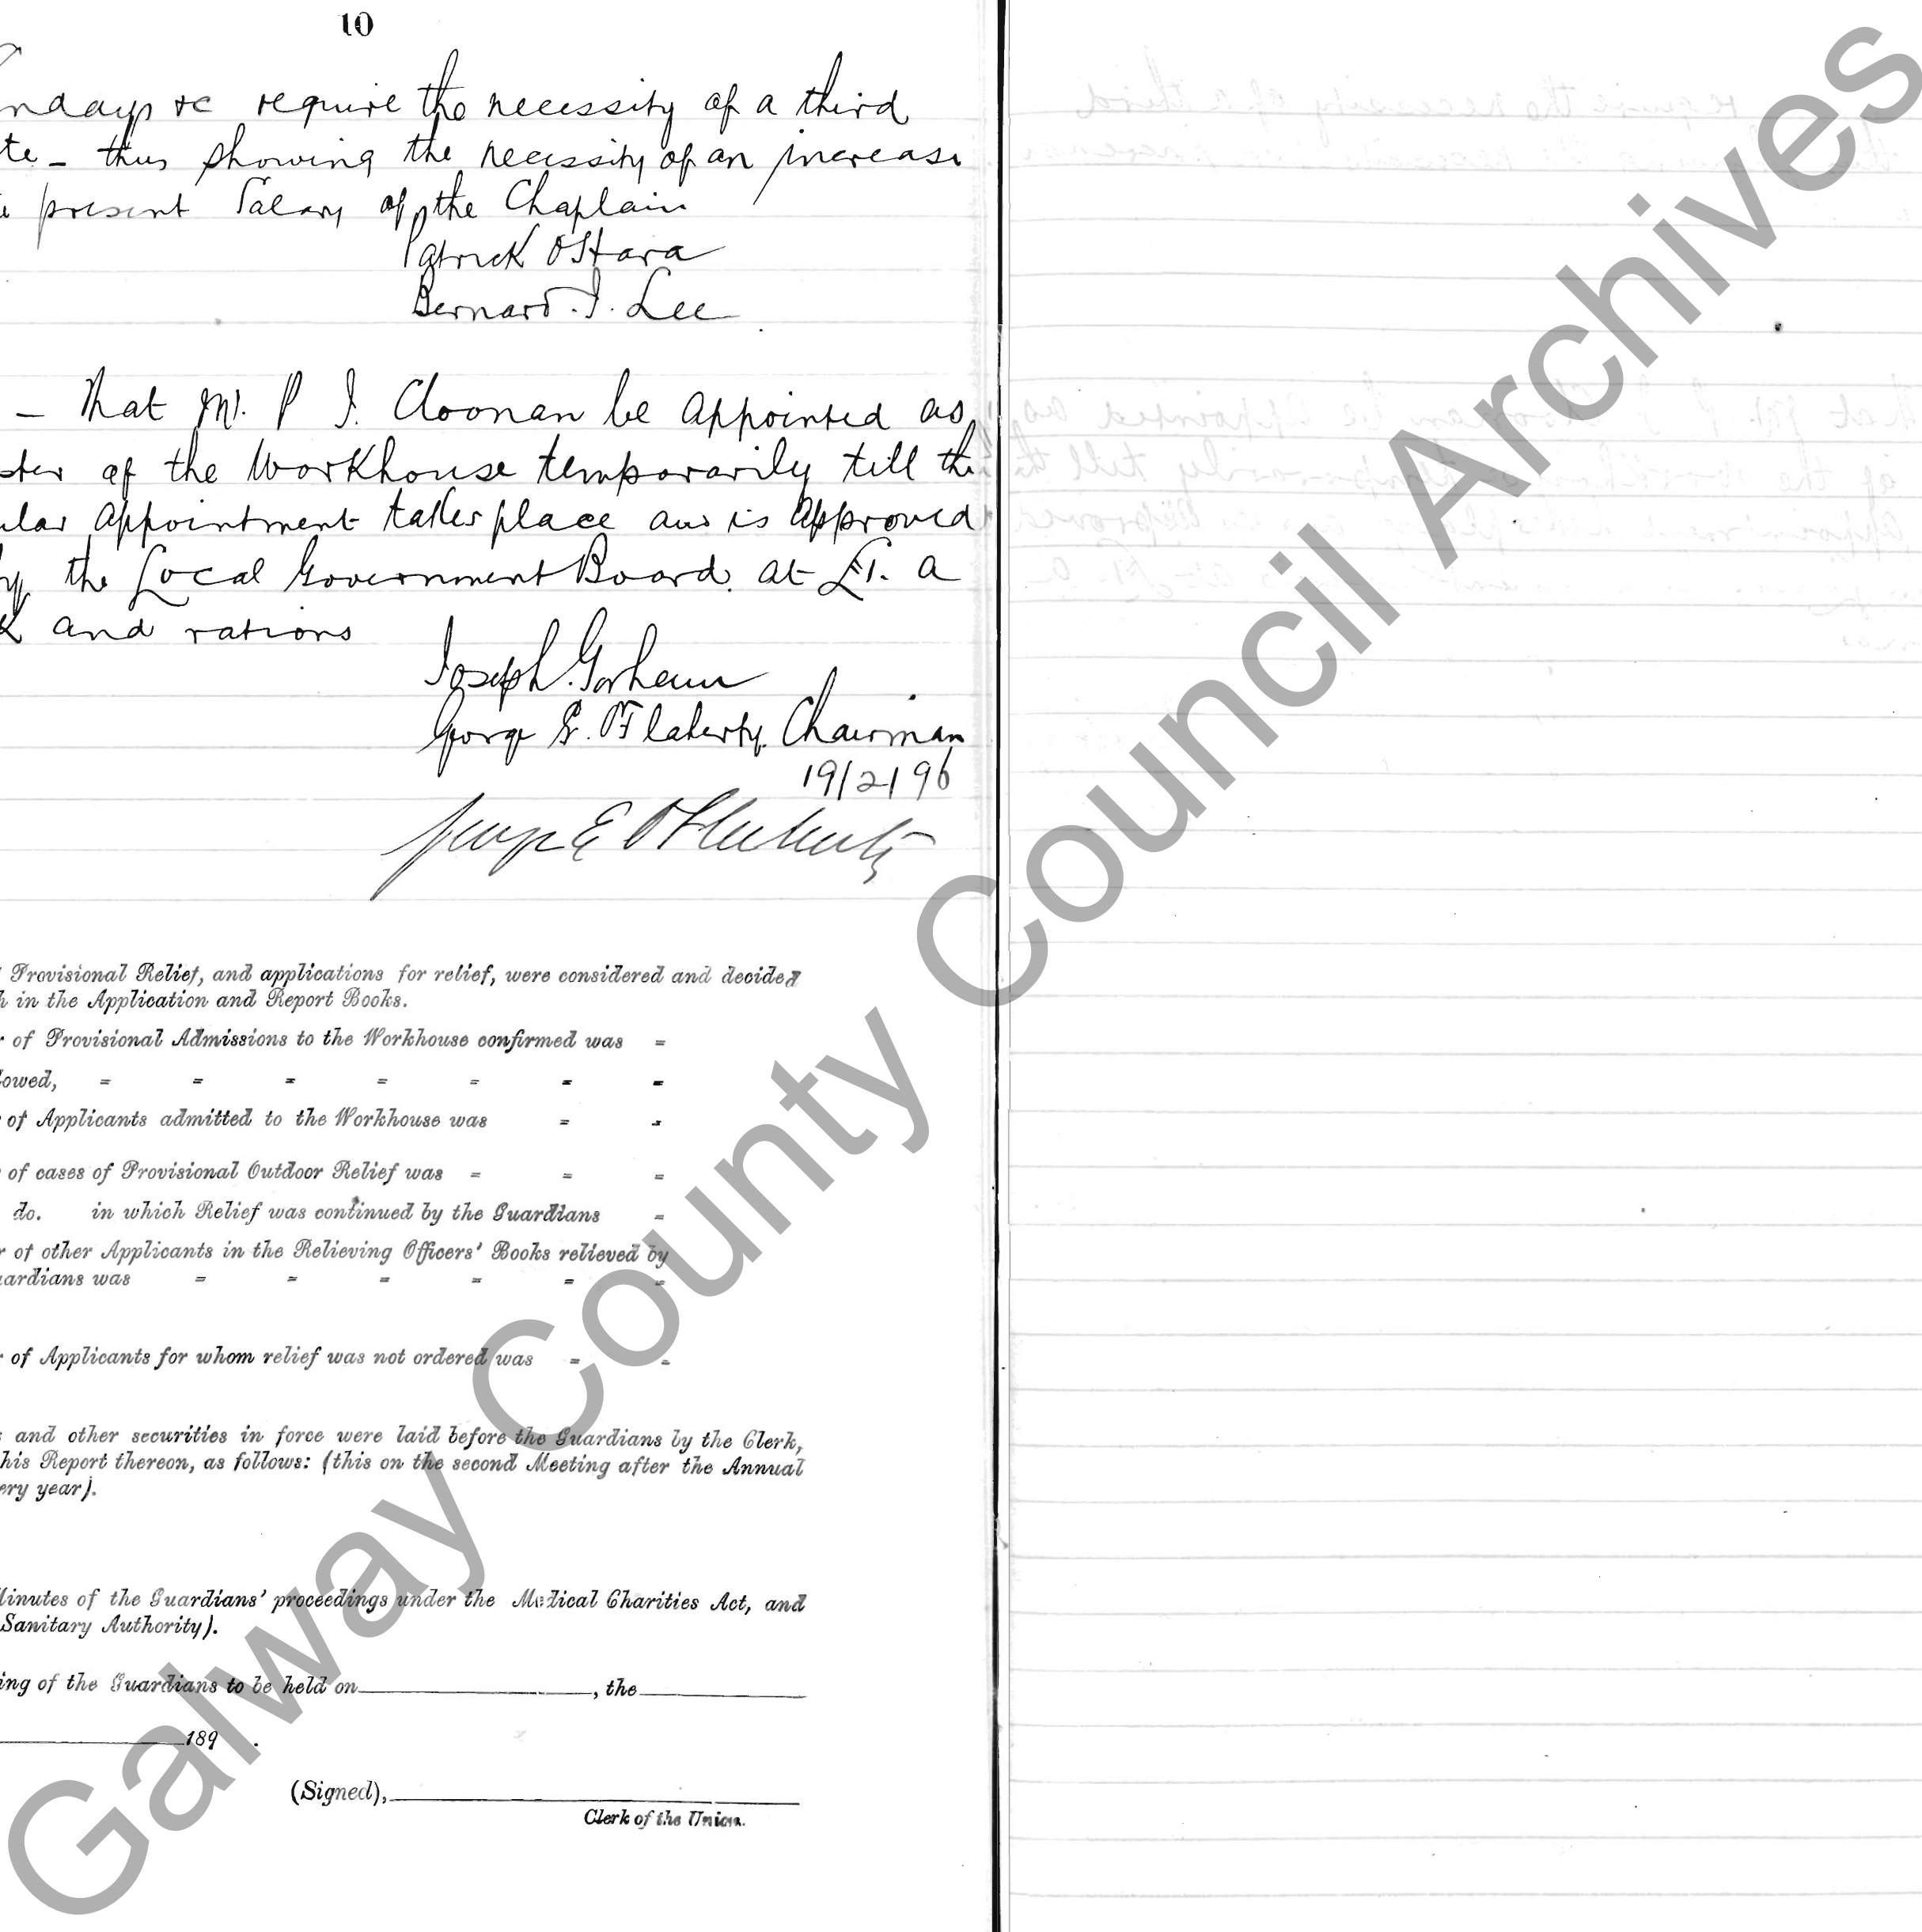 10
ndays &c require the necessity of a third
te - thus showing the necessity of an increase
present Salary of the Chaplain
Patrick O'Hara
Bernard J. Lee
- That Mr. P J. Cloonan be appointed as
ster of the Workhouse temporarily till the
ular appointment takes place and is approved
by the Local Government Board at £1. a
k and rations
Joseph Gorham
George E. O'Flaherty Chairman
19/2/96
George E O'Flaherty
Provisional Relief, and applications for relief, were considered and decided
h in the Application and Report Books.
r of Provisional Admissions to the Workhouse confirmed was =
lowed, = = = = = = =
of Applicants admitted to the Workhouse was = =
of cases of Provisional Outdoor Relief was = = =
do. in which Relief was continued by the Guardians =
r of other Applicants in the Relieving Officers' Books relieved by
uardians was = = = = = =
r of Applicants for whom relief was not ordered was = =
s and other securities in force were laid before the Guardians by the Clerk,
his Report thereon, as follows: (this on the second Meeting after the Annual
ery year).
Minutes of the Guardians' proceedings under the Medical Charities Act, and
Sanitary Authority).
ing of the Guardians to be held on , the
189 .
(Signed),
Clerk of the Union.
Galway County Council Archives